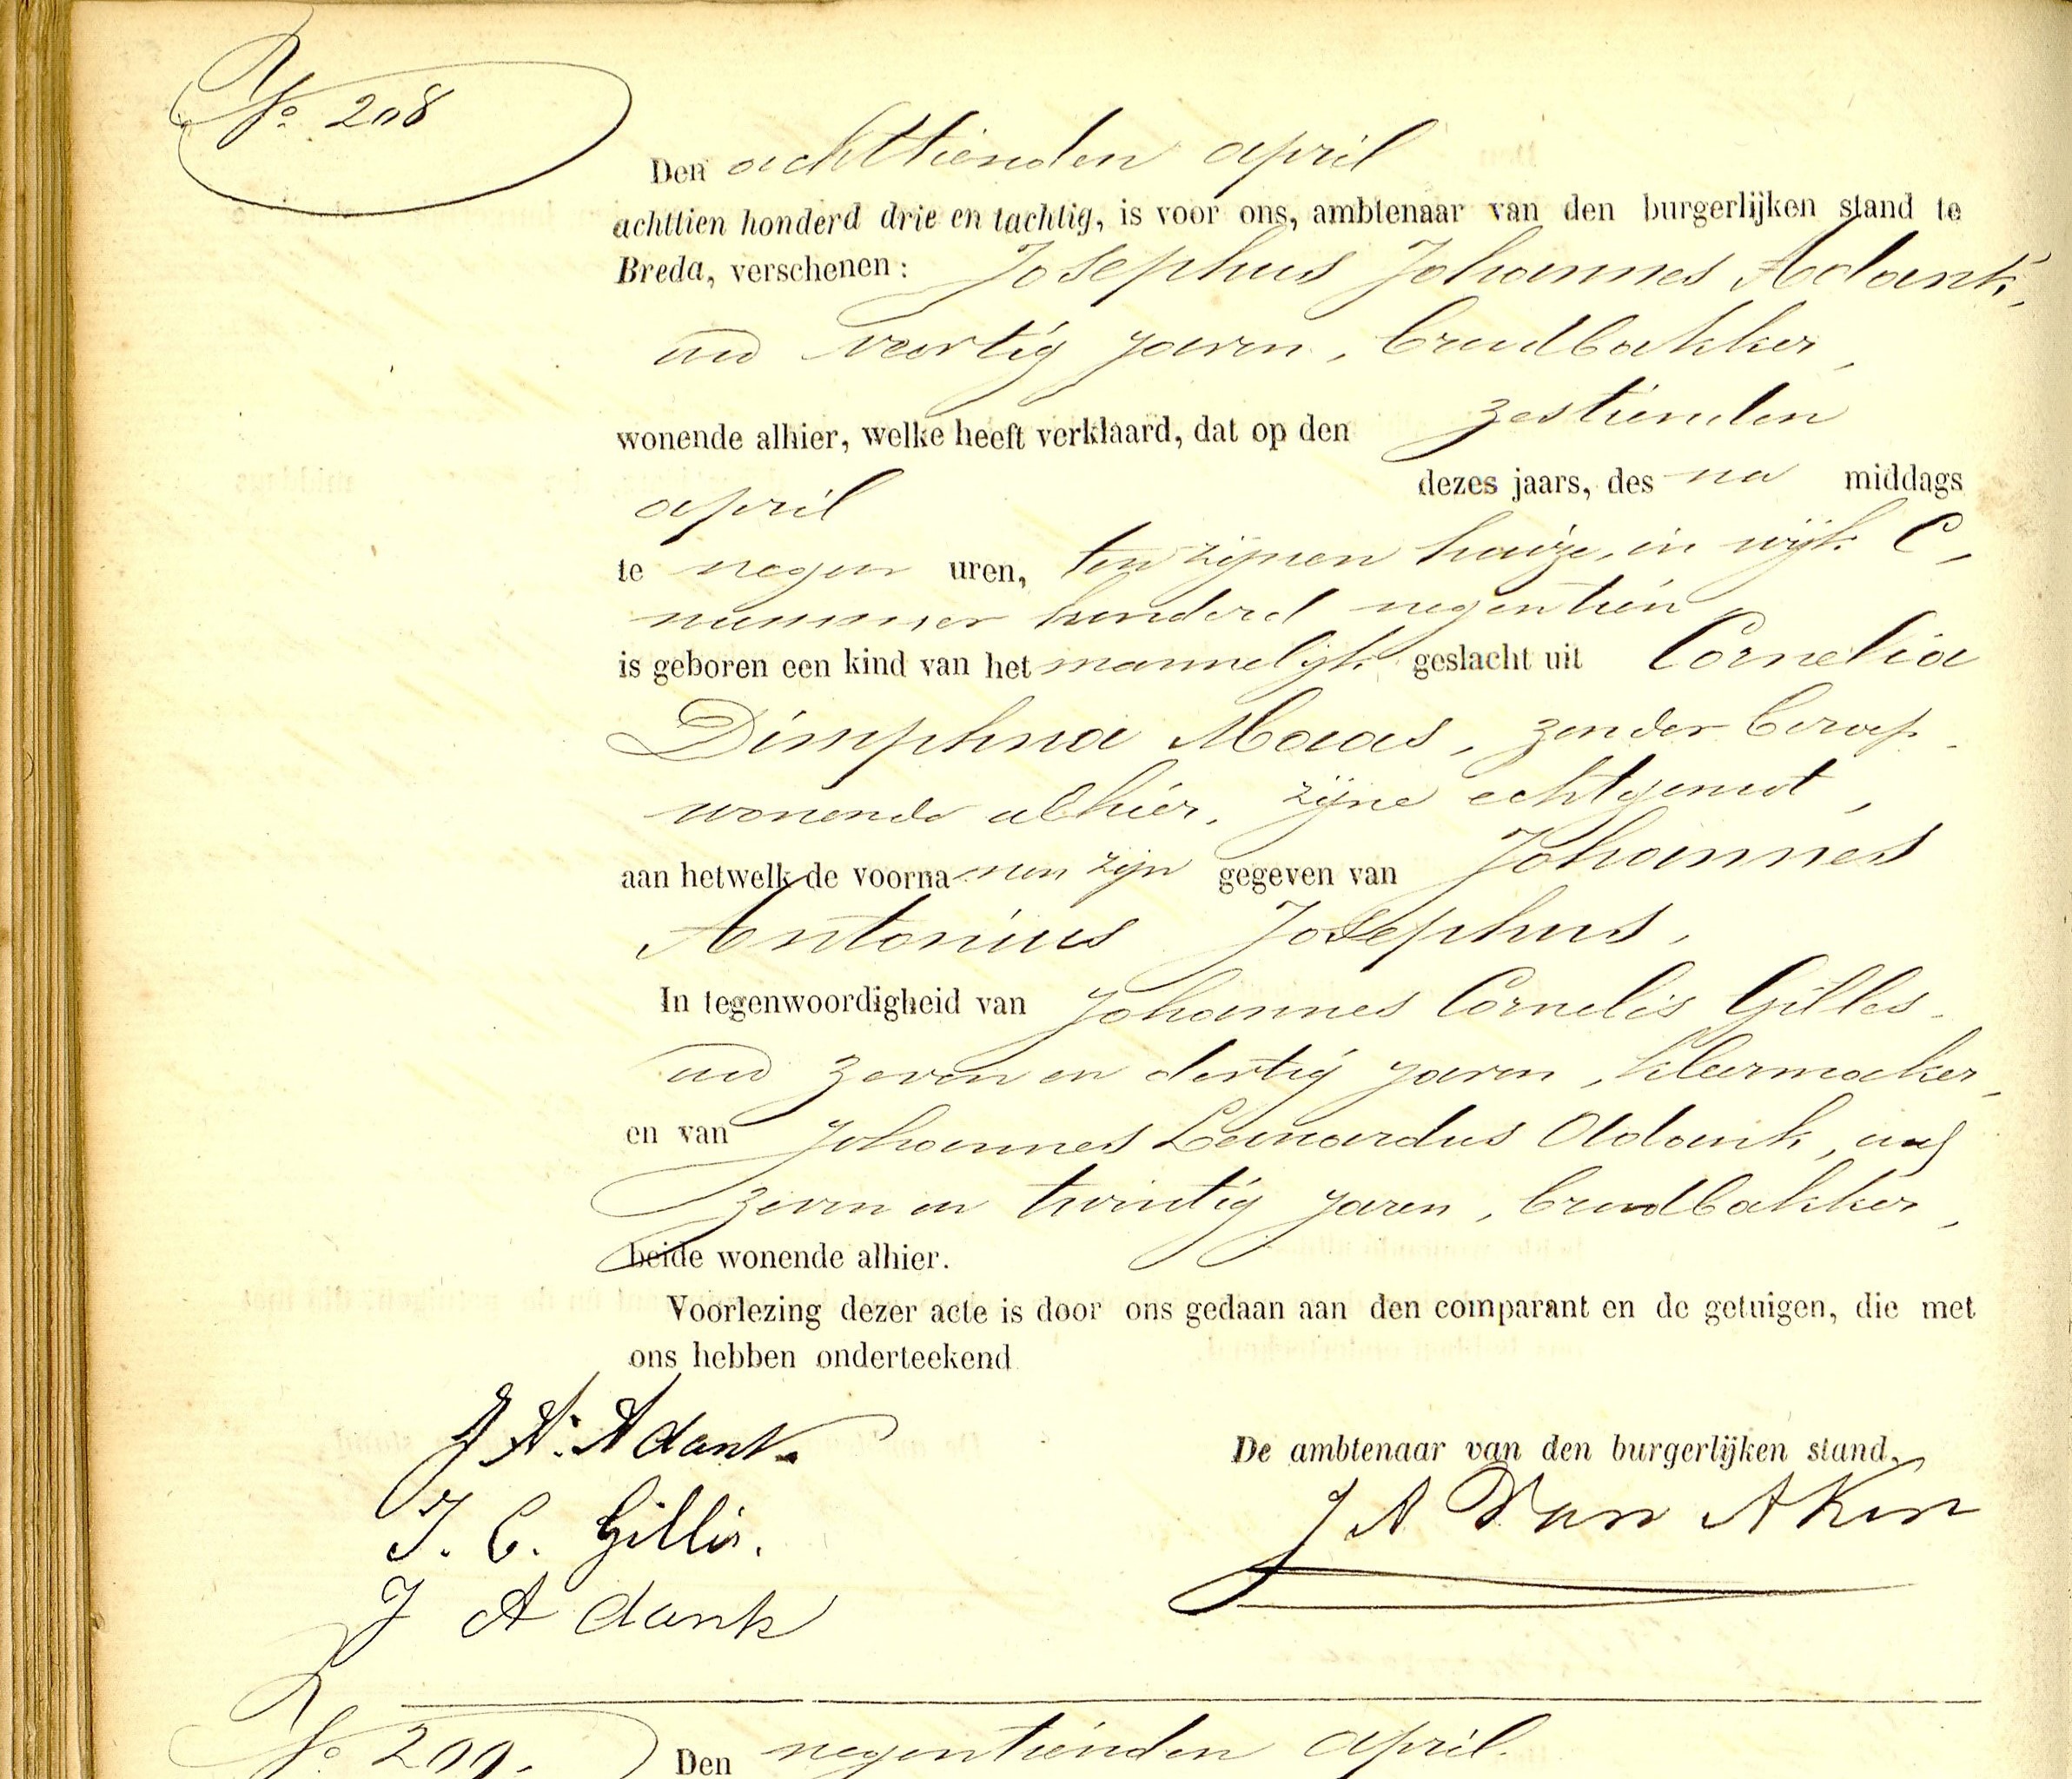 No 208
Den achttienden april
achttien honderd drie en tachtig, is voor ons, ambtenaar van den burgerlijken stand te
Breda, verschenen: Josephus Johannes Adank,
oud veertig jaren, broodbakker,
wonende alhier, welke heeft verklaard, dat op den zestienden
april dezes jaars, des na middags
te negen uren, ten zijnen huize, in wijk C,
nummer honderd negentien
is geboren een kind van het mannelijk geslacht uit Cornelia
Dimphna Maas, zonder beroep
wonende alhier, zijne echtgenoot,
aan hetwelk de voornamen zijn gegeven van Johannes
Antonius Josephus,
In tegenwoordigheid van Johannes Cornelis Gilles
oud zeven en dertig jaren, kleermaker,
en van Johannes Leonardus Adank, oud
zeven en twintig jaren, broodbakker,
beide wonende alhier.
Voorlezing dezer acte is door ons gedaan aan den comparant en de getuigen, die met
ons hebben onderteekend
J Adank
De ambtenaar van den burgerlijken stand,
J. C. Gillis.
J A Van Aken
J Adank
No 209.
Den negentienden april.